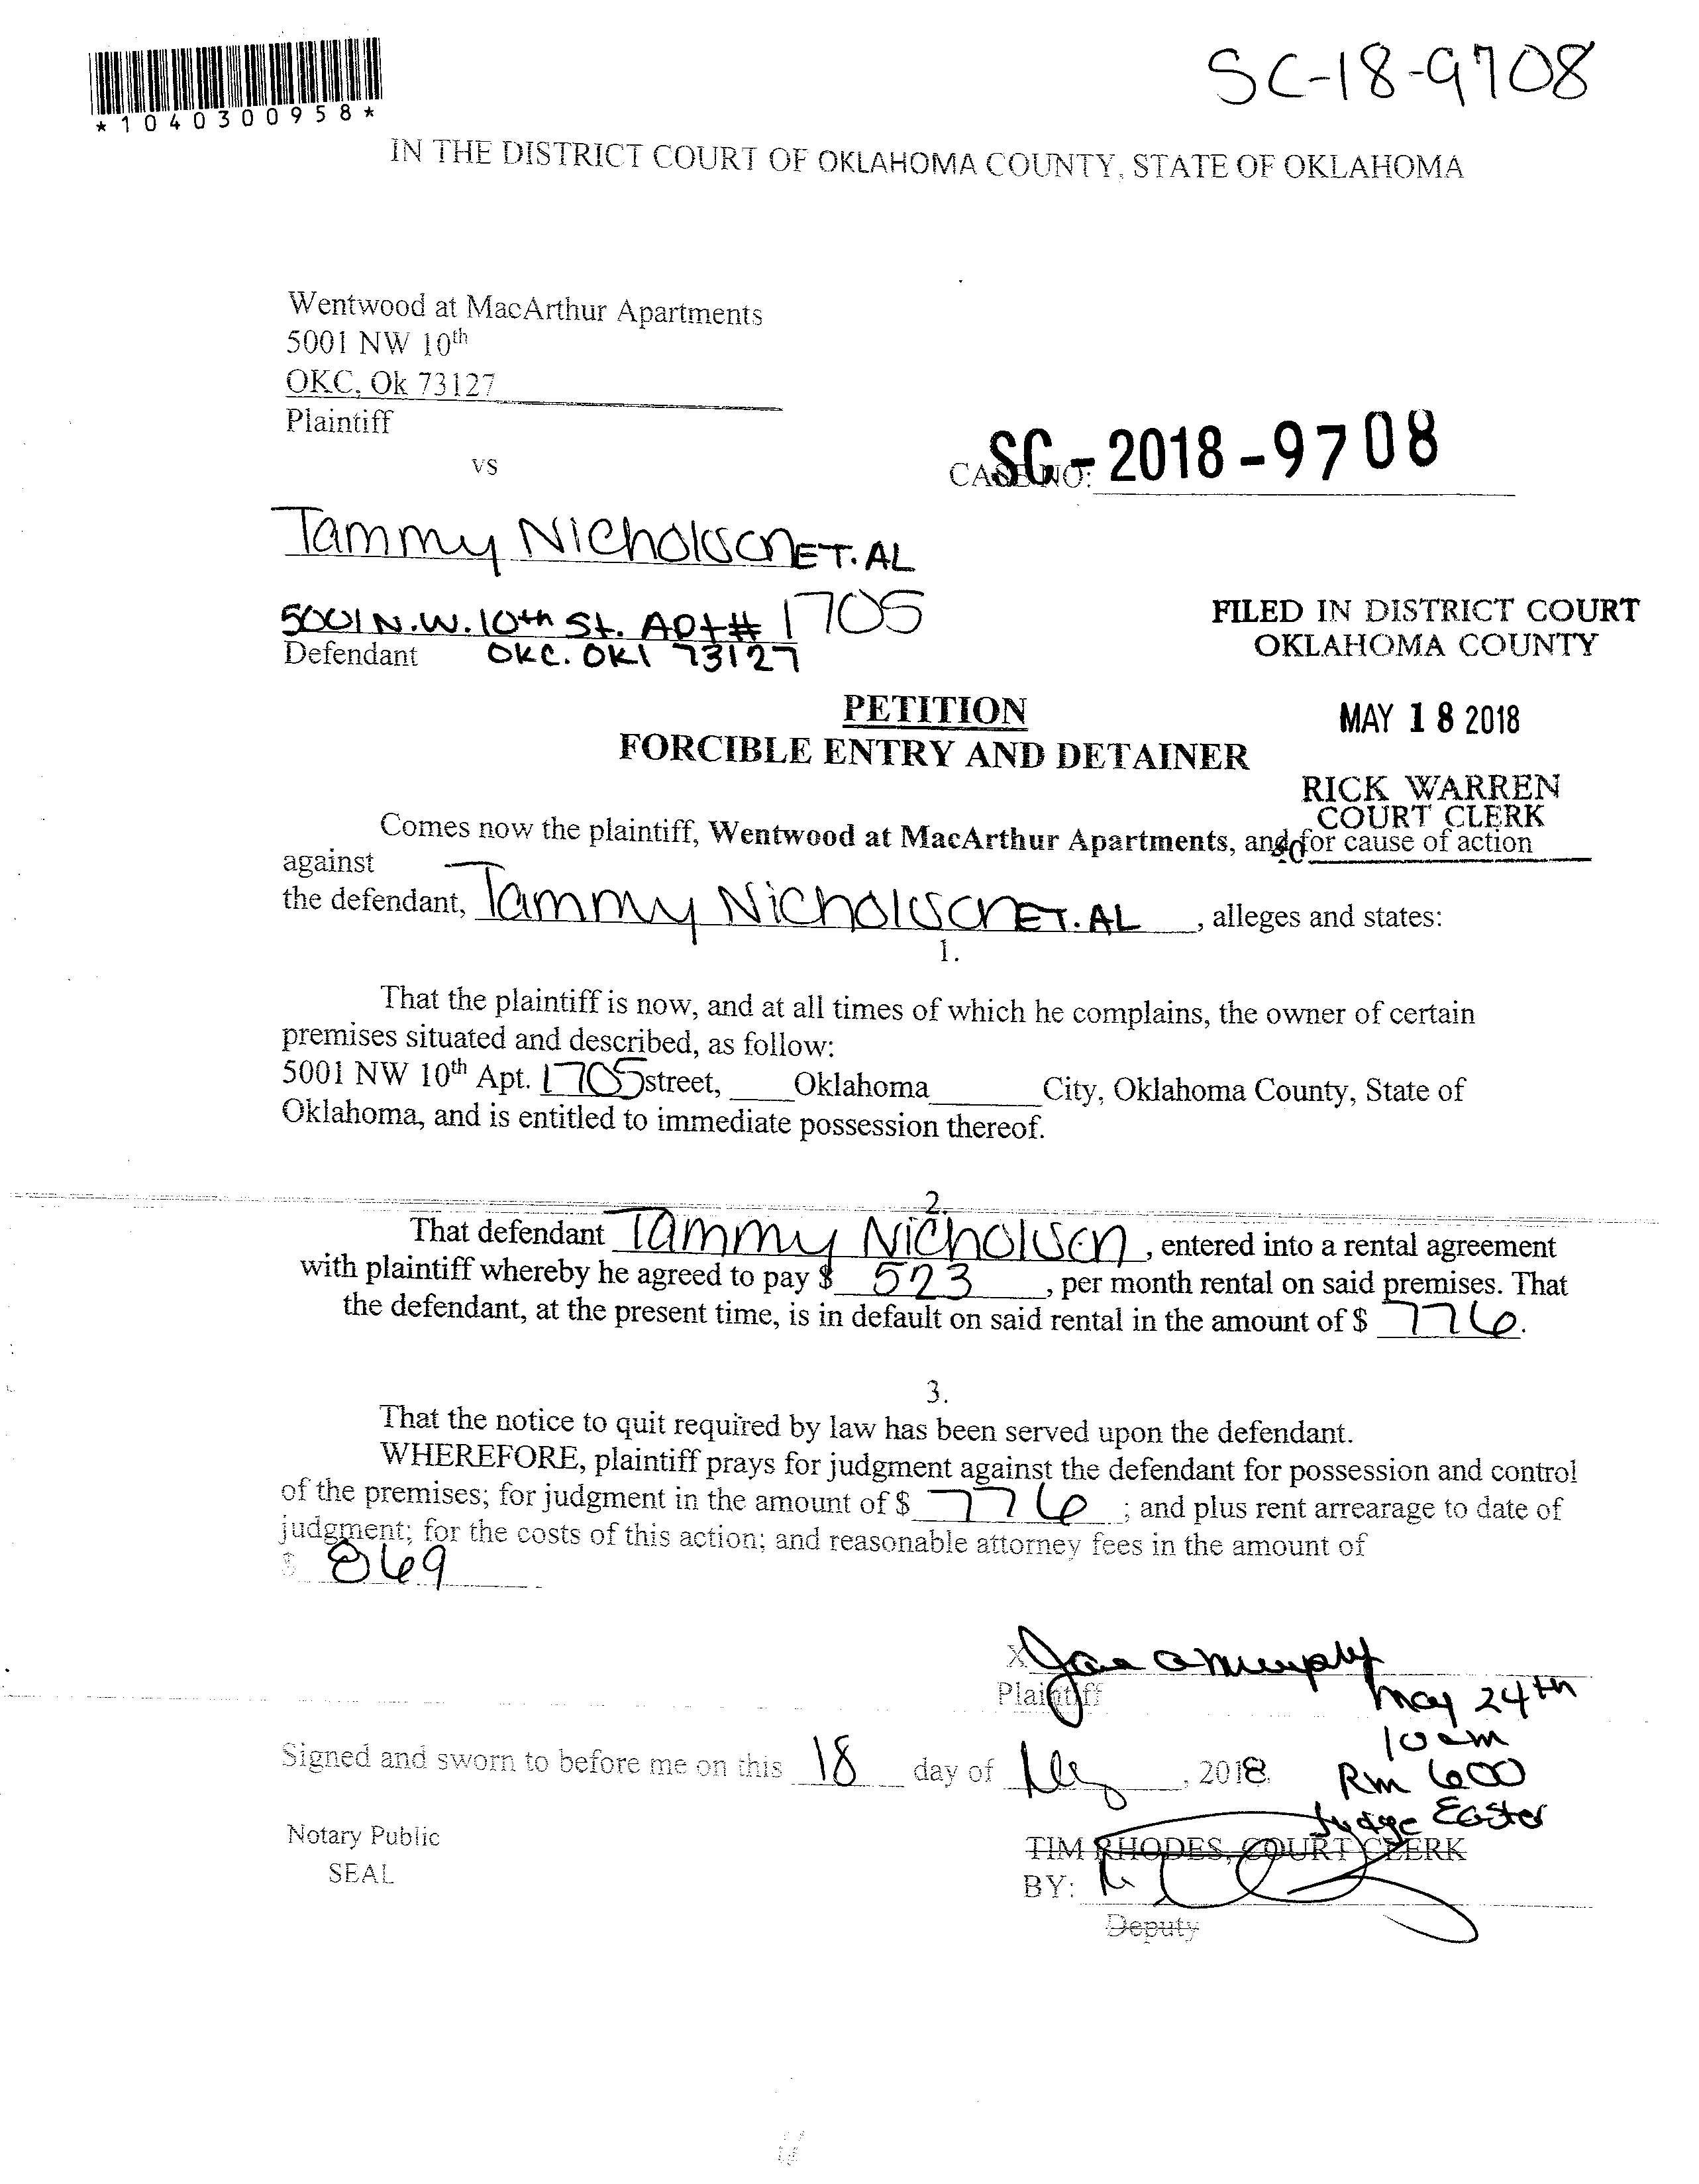 SC-18-9708
*1040300958*
IN THE DISTRICT COURT OF OKLAHOMA COUNTY, STATE OF OKLAHOMA
Wentwood at MacArthur Apartments
5001 NW 10th
OKC, Ok 73127
Plaintiff
vs
CASE NO: SC-2018-9708
Tammy Nicholson ET. AL
5001 N.W. 10th St. Apt# 1705
Defendant OKC. OKl 73127
FILED IN DISTRICT COURT
OKLAHOMA COUNTY
MAY 18 2018
RICK WARREN
COURT CLERK
PETITION
FORCIBLE ENTRY AND DETAINER
Comes now the plaintiff, Wentwood at MacArthur Apartments, and for cause of action
against
the defendant, Tammy Nicholson ET. AL, alleges and states:
1.
That the plaintiff is now, and at all times of which he complains, the owner of certain
premises situated and described, as follow:
5001 NW 10th Apt. 1705 street, ____Oklahoma_______City, Oklahoma County, State of
Oklahoma, and is entitled to immediate possession thereof.
2.
That defendant Tammy Nicholson, entered into a rental agreement
with plaintiff whereby he agreed to pay $ 523, per month rental on said premises. That
the defendant, at the present time, is in default on said rental in the amount of $ 776.
3.
That the notice to quit required by law has been served upon the defendant.
WHEREFORE, plaintiff prays for judgment against the defendant for possession and control
of the premises; for judgment in the amount of $ 776; and plus rent arrearage to date of
judgment; for the costs of this action; and reasonable attorney fees in the amount of
$ 869
X
Plaintiff
May 24th
10am
Rm 600
Judge Easter
Signed and sworn to before me on this 18 day of May, 2018.
Notary Public
SEAL
TIM RHODES, COURT CLERK
BY:
Deputy